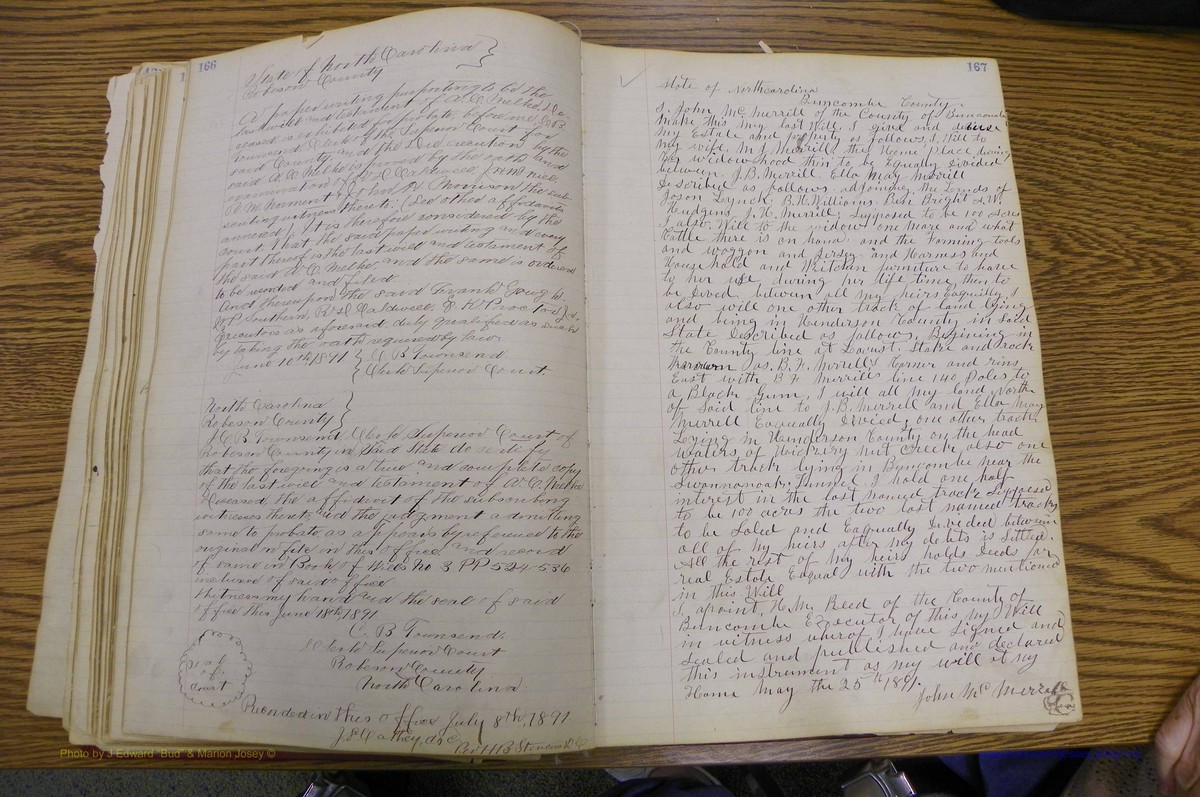 166
State of North Carolina }
Robeson County
A paper writing purporting to be the
last will and testament of A. C. Melke De-
ceased is exhibited for probate before me, C. B.
Townsend Clerk of the Superior Court for
said County, and the due execution by the
said A. C. Melke is proved by the oath and
examination of D. Caldwell, Frank
Thomson the sub-
scribing witnesses thereto; (See other affidavits
annexed). It is therefore considered by the
court, that the said paper writing and every
part thereof is the last will and testament of
the said A. C. Melke, and the same is ordered
to be recorded and filed.
And thereupon the said Frank Gough W.
P Southern, R. D. Caldwell, E. K. Proctor Jr.
Executors as aforesaid, duly qualified as such
by taking the oath required by law.
June 10th 1891 } C. B. Townsend
} Clerk Superior Court
North Carolina }
Robeson County }
I C. B. Townsend Clerk Superior Court of
Robeson County in said State do certify
that the foregoing is a true and complete copy
of the last will and testament of A. C. Melke
Deceased, the affidavit of the subscribing
witnesses thereto, and the judgment admitting
same to probate, as appears by reference to the
original on file in this office and record
of same in Book of Wills No 3 PP 524-536
inclusive of said office
Witness my hand and the seal of said
office this June 18th, 1891
C. B Townsend.
Clerk Superior Court
Robeson County
North Carolina
Seal
of
Court
Recorded in this office July 8th, 1891
J. L. Cathey, csc
By H B Stevens D.C.
167
State of Northcarolina
Buncombe County.
I. John McMerrill of the County of Buncombe
make this my last Will. I give and devise
My Estate and property as follows, I. Will to
my wife, M. J. Merrills the Home place during
her widow hood then to be Equally divided
between. J. B. Merrill. Ella May Merrill
Described as follows. adjoining the Lands of
Jason Lynch, B. H. Williams. Bright. S. W.
Hudgins. J. H. Merrill, Supposed to be 100 acres
I also. Will to the widow one mare and what
Cattle there is on hand. and the Farming tools
and waggon and Jersy and Harness and
Household and Kitchen furniture to have
to her use during her life time then to
be Devided. between all my heirs Eaqually, I
also will one other track of land lying
and being in Henderson County in Said
State Described as follows, Begining in
the County line at Locust. Stake and rock
known as. B. F. Merrills Corner and rins
East with B. F. Merrills line 140 Poles to
a Black Gum, I will all my land North
of Said line to J. B. Merrill and Ella May
Merrill Eaqually Divided, one other track
Lying in Henderson County on the head
waters of Hickery nut Creek also one
other track lying in Buncombe near the
Swannanoah Tunnel I hold one half
interest in the last named track Supposed
to be 100 acres the two last named tracks
to be Soled and Eaqually Devided between
all of My heirs after my debts is Settled.
All the rest of My heirs holds Deeds for
real Estate Eaqual with the two mentioned
in this Will
I, apoint. H. M. Reed of the County of
Buncombe Executor of this my Will
in witness wherof I have Signed and
Sealed and published and declared
this instrument as my will at my
Home May the 25th 1891.
John McMerrill
Photo by J Edward "Bud" & Marion Josey ©